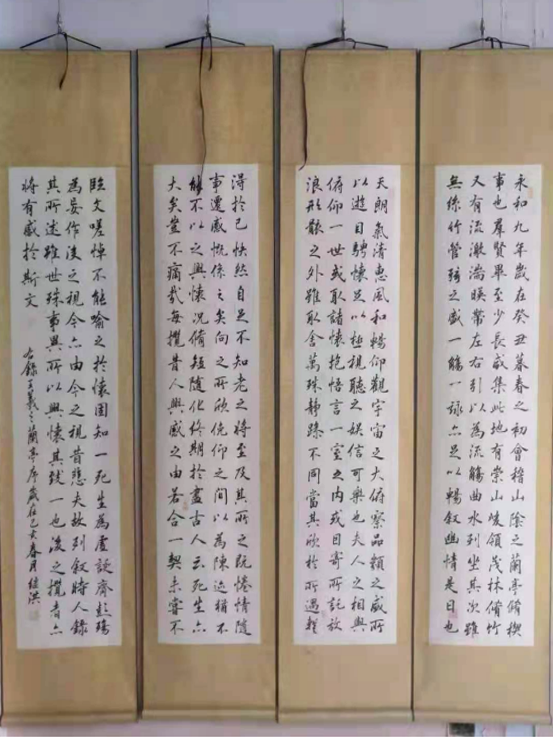 永和九年歲在癸丑暮春之初會稽山陰之蘭亭脩稧
事也羣賢畢至少長咸集此地有崇山峻領茂林脩竹
又有流激湍暎帶左右引以為流觴曲水列坐其次雖
無絲竹管弦之盛一觴一詠亦足以暢叙幽情是日也
天朗氣清惠風和暢仰觀宇宙之大俯察品類之盛所
以遊目騁懷足以極視聽之娛信可樂也夫人之相與
俯仰一世或取諸懷抱悟言一室之内或因寄所託放
浪形骸之外雖取舍萬殊静躁不同當其欣於所遇暫
得於己快然自足不知老之將至及其所之既惓情隨
事遷感慨係之矣向之所欣俛仰之間以為陳迹猶不
能不以之興懷況脩短隨化終期於盡古人云死生亦
大矣豈不痛哉每攬昔人興感之由若合一契未嘗不
臨文嗟悼不能喻之於懷固知一死生為虛誕齊彭殤
為妄作後之視今亦由今之視昔悲夫故列叙時人錄
其所述雖世殊事異所以興懷其致一也後之攬者亦
將有感於斯文
右錄王羲之蘭亭序歲在己亥春月继洪